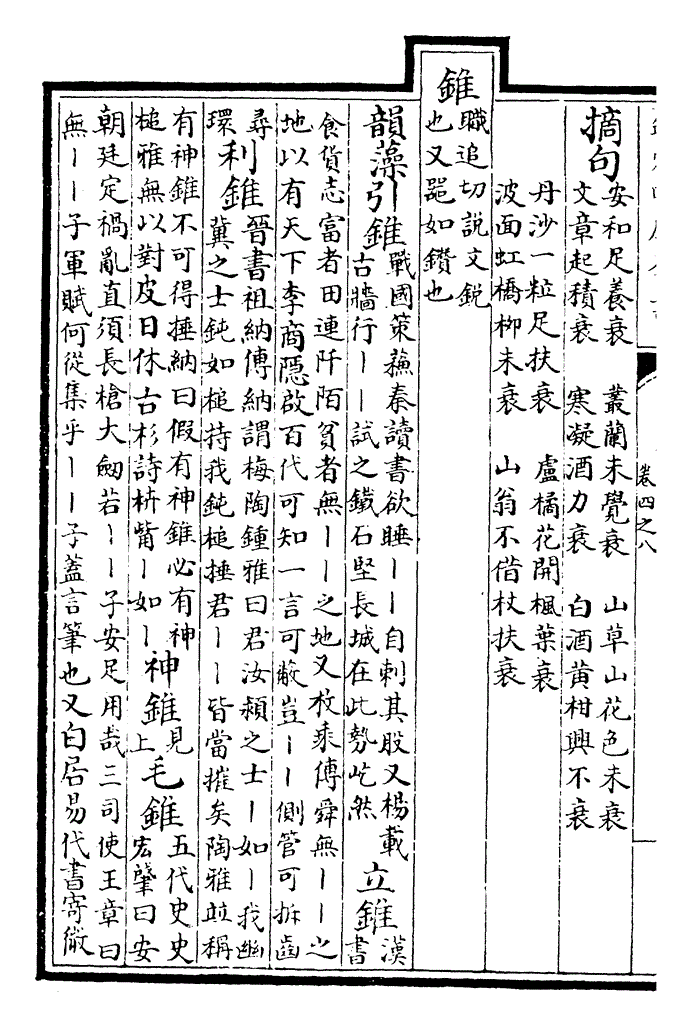 卷四之八
摘句
安和足養衰　叢蘭未覺衰　山草山花色未衰
文章起積衰　寒凝酒力衰　白酒黄柑興不衰
丹沙一粒足扶衰　盧橘花開楓葉衰
波面虹橋柳未衰　山翁不借杖扶衰
錐
職追切說文銳
也又噐如鑽也
韻藻引錐
戰國策蘇秦讀書欲睡丨丨自刺其股又楊載
古牆行丨丨試之鐵石堅長城在此勢屹然
立錐
漢
書
食貨志富者田連阡陌貧者無丨丨之地又枚乘傳舜無丨丨之
地以有天下李商隱啟百代可知一言可蔽豈丨丨側管可拆齒
尋
環
利錐
晉書祖納傳納謂梅陶鍾雅曰君汝潁之士丨如丨我幽
冀之士鈍如槌持我鈍槌捶君丨丨皆當摧矣陶雅竝稱
有神錐不可得捶納曰假有神錐必有神
槌雅無以對皮日休古杉詩枿觜丨如丨
神錐
見
上
毛錐
五代史史
宏肇曰安
朝廷定禍亂直須長槍大劒若丨丨子安足用哉三司使王章曰
無丨丨子軍賦何從集乎丨丨子蓋言筆也又白居易代書寄微